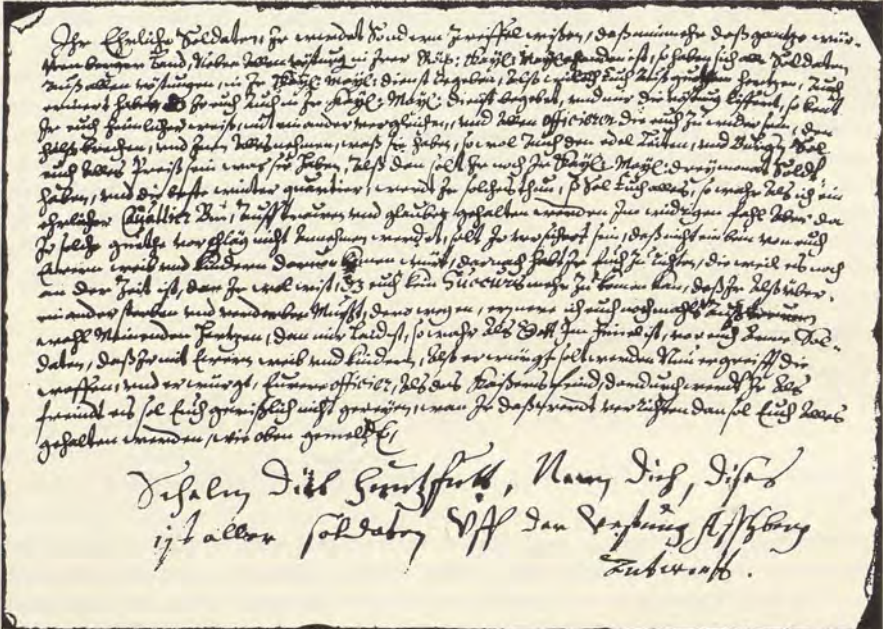 Ihr Ehrliche Soldaten, Ir werdet Sondern Zweiffel wißen, daß nunmehr daß gantze wür-
tenberger Land, Nebn allen in Irer Röm: Kayl: Mayl: handen ist, so haben sich alle Soldaten
auß allen in Ir Kayl: Mayl: dienst begeben, Alß will ich Euch Auß guttem hertzen, Auch
errinert haben Ir euch Auch in Ir Kayl: Mayl: dienst begebet, und mir die liffert, so kent
Ir euch heimlicher weiß, mit ein ander vergleichen, und Allen officirer die euch zu wider sein, den
halß brechen, und Inen Alles nehmen, waß sie haben, so wol Auch den edel Leüten, und Sol
euch Alles Preiß sein was sie haben, Alß dan solt Ir noch Ir Kayl: Mayl: drey monat Soldt
haben, und die beste winter quartier, werdt Ir solches thun, so Sol Euch alles, so wahr Als ich ein
ehrlicher bin, auff trauen und glauben gehalten werden Im widrigen fahl Aber da
Ir solche guethe vorschläg nicht Annehmen werdet, solt Ir versichert sein, daß nicht ein ben von euch
Eueren weib und kindern darvon komen wirt, darnach habt Ir Euch zu richten, die weil es noch
an der Zeit ist, dan Ir wol wist, daß euch kein Succurs mehr zu komen kan, daß Ir Alß über-
ein ander sterben und verderben Müßt, dero wegen, erinere ich euch nochmahls auß
wohl Meinenden hertzen, dan mir Laid ist, so wahr Als Gott Im himel ist, vor euch Arme Sol-
daten, daß Ir mit Eurem weib und kindern, Alß erwürgt solt werden Nun ergreifft die
waffen, und erwürgt, Eurere officier, Als das Kaißers feind, dardurch werdt Ir Als
freindt es sol Euch gewißlich nicht gereyen, wan Ir daß werdt verrichten dan sol Euch Alles
gehalten werden, wie oben gemelt,
Schelm Dieb Huntzfutt, Nenn Dich, dises
ist aller soldaten Uff der Vestung Asschberg
Andtwortt.